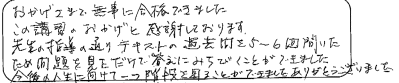 おかげさまで無事に合格できました
この講習のおかげと感謝しております。
先生の指導の通りテキストの過去問を5～6回解いた
ため問題を見ただけで答えにみちびくことができました
今後の人生に向けて一つ階段を昇ることができましたありがとうございました。